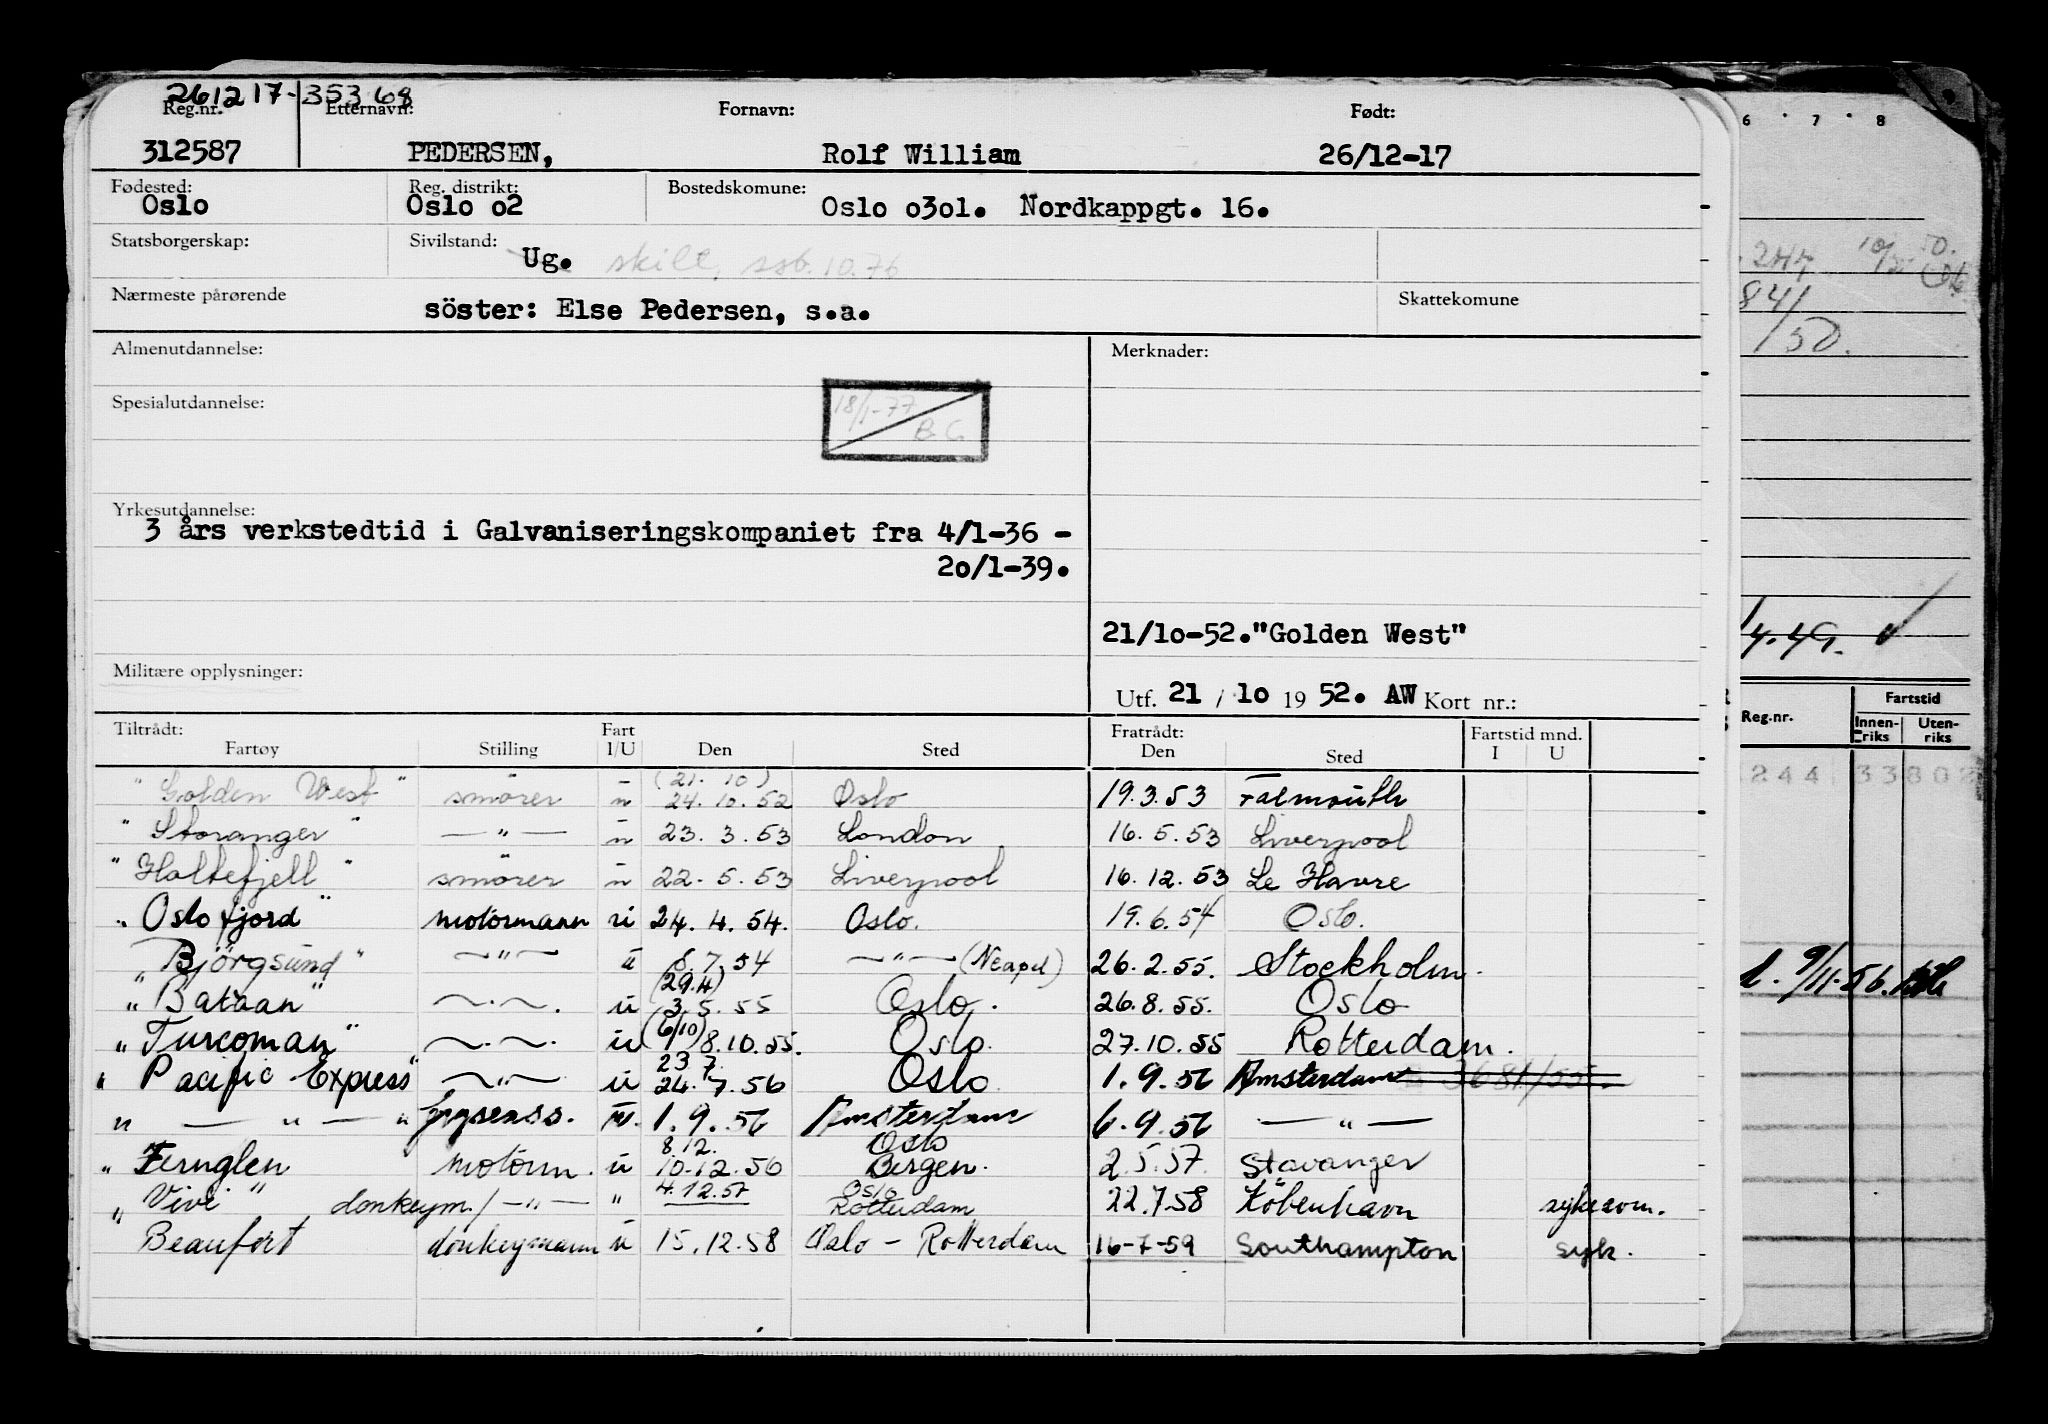 261217-35368
Reg.nr. Etternavn: Fornavn: Født:
312587 PEDERSEN, Rolf William 26/12-17
Fødested: Reg. distrikt: Bostedskomune:
Oslo Oslo o2 Oslo o3o1. Nordkappgt. 16.
Statsborgerskap: Sivilstand:
Ug. skilt, ssb. 10.76
Nærmeste pårørende Skattekomune
söster: Else Pedersen, s.a.
Almenutdannelse: Merknader:
Spesialutdannelse:
18/1-77
B G
Yrkesutdannelse:
3 års verkstedtid i Galvaniseringskompaniet fra 4/1-36 -
2o/1-39.
21/1o-52."Golden West"
Militære opplysninger:
Utf. 21 / 1o 19 52. AW Kort nr.:
Tiltrådt: Fart Fratrådt: Fartstid mnd.
Fartøy Stilling I/U Den Sted Den Sted I U
(21. 10)
"Golden West" smører u 24.10.52 Oslo 19.3.53 Falmouth
"Storanger" — " — u 23.3.53 London 16.5.53 Liverpool
"Holtefjell" smører u 22.5.53 Liverpool 16.12.53 Le Havre
"Oslofjord" motormann u 24.4.54. Oslo. 19.6.54 Oslo.
"Björgsund" — " — u 8.7.54 — " — (Neapel) 26.2.55. Stockholm.
(29.4)
"Bataan" — " — u 3.5.55 Oslo. 26.8.55. Oslo
"Turcoman" — " — u (6/10) 8.10.55. Oslo. 27.10.55 Rotterdam.
23.7.
"Pacific Express" — " — u 24.7.56 Oslo 1.9.56 Amsterdam
" — " — " u. 1.9.56 Amsterdam 6.9.56 — " —
8.12. Oslo
"Fernglen motorm. u 10.12.56 Bergen. 2.5.57. Stavanger
4.12.57 Oslo
"Vivi" donkeym./ — " — " Rotterdam 22.7.58 København sykeavm.
Beaufort donkeymann u 15.12.58 Oslo - Rotterdam 16-7-59 Southampton syk.
6 · 7 · 8
247 10/ 50.
841
/50.
4.49.
Reg.nr. Fartstid
Innenriks Utenriks
244 33802
1. 9/11.56.